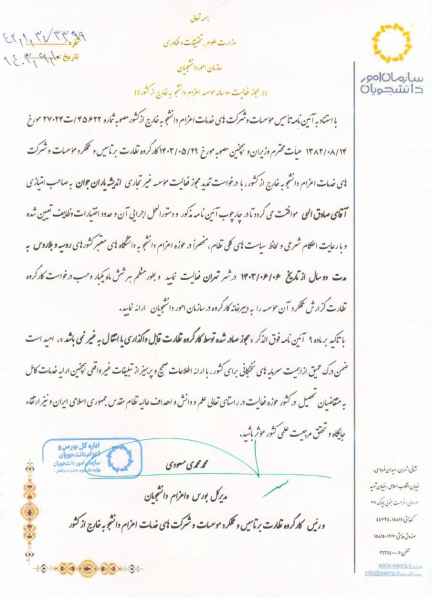 بسمه تعالی
وزارت علوم، تحقیقات و فناوری
سازمان امور دانشجویان
«مجوز فعالیت دو ساله موسسه اعزام دانشجو به خارج از کشور»
سازمان امور
دانشجویان
شماره
تاریخ
با استناد به آئین نامه تاسیس موسسات و شرکت های خدمات اعزام دانشجو به خارج از کشور مصوبه شماره ۴۵۶۲۲/ت۲۷۰۲۴ مورخ
۱۳۸۲/۰۸/۱۴ هیات محترم وزیران و همچنین مصوبه مورخ ۱۴۰۳/۰۵/۲۹ کارگروه نظارت بر تاسیس و عملکرد موسسات و شرکت
های خدمات اعزام دانشجو به خارج از کشور، با درخواست تمدید مجوز فعالیت موسسه غیر تجاری اندیشه یاران جوان به صاحب امتیازی
آقای صادق الهی موافقت می گردد تا در چارچوب آئین نامه مذکور و دستورالعمل اجرایی آن و حدود اختیارات و وظایف تعیین شده
و با رعایت احکام شرعی و لحاظ سیاست های کلی نظام، منحصراً در حوزه اعزام دانشجو به دانشگاه های معتبر کشورهای روسیه و بلاروس به
مدت دو سال از تاریخ ۱۴۰۳/۰۶/۰۶ در شهر تهران فعالیت نماید و بطور منظم هر شش ماه یکبار و حسب درخواست کارگروه
نظارت گزارش عملکرد آن موسسه را به دبیرخانه کارگروه در سازمان امور دانشجویان ارائه نماید.
با تاکید بر ماده ۹ آئین نامه فوق الذکر، مجوز صادر شده توسط کارگروه نظارت قابل واگذاری یا انتقال به غیر نمی باشد. امید است
ضمن درک عمیق از اهمیت سرمایه های نخبگانی برای کشور، با ارائه اطلاعات صحیح و پرهیز از تبلیغات غیر واقعی همچنین ارایه خدمات کامل
به متقاضیان تحصیل در کشور حوزه فعالیت در راستای تعالی علم و دانش و اهداف عالیه نظام مقدس جمهوری اسلامی ایران و نیز ارتقاء
جایگاه و تحقق مرجعیت علمی کشور موثر باشید.
اداره کل بورس و
اعزام دانشجویان
سازمان امور دانشجویان
محمد محمدی مسعودی
مدیرکل بورس و اعزام دانشجویان
و رئیس کارگروه نظارت بر تاسیس و عملکرد موسسات و شرکت های خدمات اعزام دانشجو به خارج از کشور